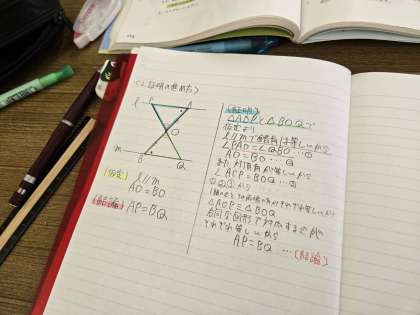 <証明の進め方>
l P A
O
m B Q
[仮定]
l // m
AO = BO
[結論] AP = BQ
[証明]
△AOPと△BOQで
仮定より
l // m で錯角は等しいから
∠PAO = ∠QBO …①
AO = BO …②
また対頂角が等しいから
∠AOP = ∠BOQ …③
①②③から
1組の辺と その両端の角がそれぞれ等しいから
△AOP ≡ △BOQ
合同な図形で対応する辺が
それぞれ等しいから
AP = BQ … (結論)